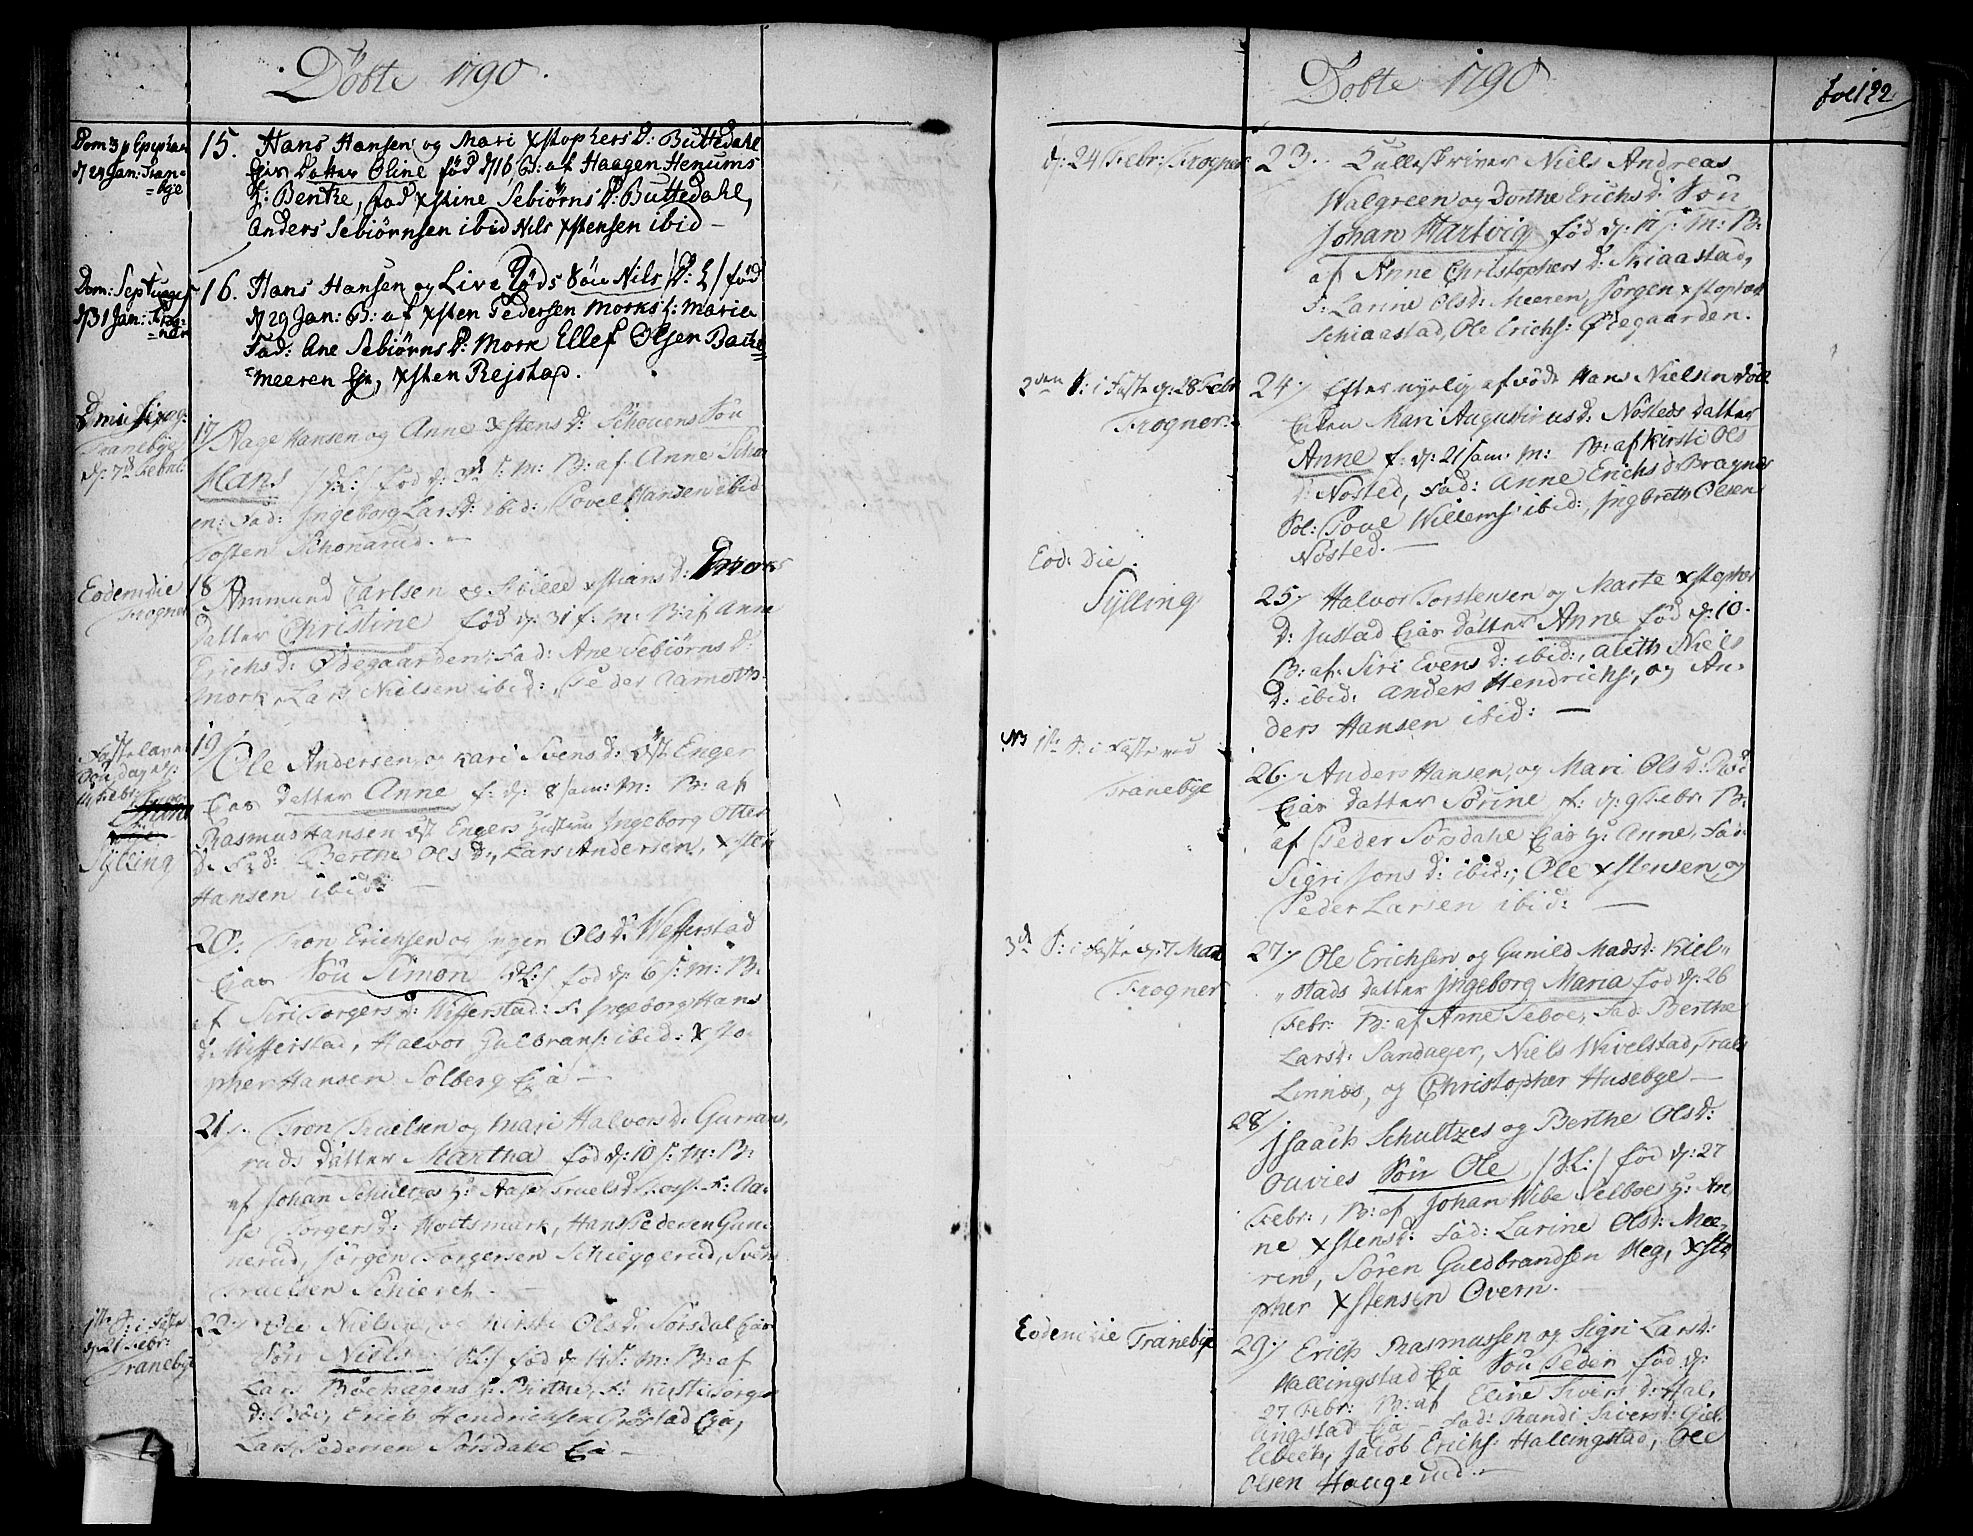 Døbte 1790.
Dom 3 p Epiphan
d 24 Jan: Tran=
=bye
15. Hans Hansen og Mari xstophers D: Buttedahl
Ejer Dotter Oline fød d 16 B: af Haagen Henums
H: Benthe, fad xstine Sebiørns D: Buttedahl,
Anders Sebiørnsen ibid Nils xstensen ibid –
Dom: Septuages
d 31 Jan: Frog=
=ner
16. Hans Hansen og Live Sön Nils fød
d 29 Jan: B: af xsten Pedersen Morks H: Marie
Fad: Ane Sebiørns D: Mork Ellef Olsen Bache
=meeren Eje, xsten Rejstad.
Tranebye
d: 7de Febr:
17 Aage Hansen og Anne xstens d: Schouens Sön
Hans fød d: 3d s: m: B: af Anne Scho
en: Fad: Ingeborg Lars d: ibid: Povel Hansen ibid
Tosten Schonerud. –
Eodem die
Frogner
18 Ammund Carlsen og xstians d: Morks
datter Christine fød d: 31 f: m: B: af Anne
Erichs d: Ødegaarden: Fad: Ane Sebiørns d:
Mork, Lars Nielsen ibid: Peder
Fastelavns
Søndag d:
14 Febr:
Sylling
19 Ole Andersen og Kari Svens d: Øst Enger
Ejer datter Anne f: d: 8 sam: m: B: af
Rasmus Hansen Øst Engers Hustrue Ingeborg Otter
d: Fad: Berthe Ols d:, Lars Andersen, xsten
Hansen ibid: –
20. Tron Erichsen og Ingen Ols d: Wefferstad
Ejer Sön Simon fød d: 6 s: m: B:
af Siri Torgers d: Wifferstad: F: Ingeborg Hans
d: Wifferstad, Halvor Gulbrans: ibid: xsto
pher Hansen Solberg Eja –
21. Tron Truelsen og Mari Halvors d: Gurran,
ruds datter Martha fød d: 10 s: m: B:
af Johan Schultzes H: Aase Truels d: F: Aa,
se Torgers d: Holtsmark, Hans Pedersen Gun,
nerud, Jörgen Torgersen Schieggerud, Sven
Truelsen Schieret. –
1ste S: i Faste
d: 21 Febr:
Tranebye
22. Ole Nielsen og Kirsti Ols d: Sørsdal Ejer
Sön Niels fød d: 14 s: m: B: af
Lars Böehagens H: Birthe, F: Kirsti Torger
d: Böe, Erich Hendrichsen Grøstad Eja,
Lars Pedersen Sørsdahl Eja –
Døbte 1790
fol 122
d: 24 Febr: Frogner
23. Kulleskriver Niels Andreas
Walgreen og Dorthe Erichs d: Sön
Johan Hartvig fød d: s: m: B:
af Anne Christophers d: Skiaastad,
F: Larine Ols d: Meeren, Jörgen xstophers:
Schiaastad, Ole Erichs: Ødegaarden.
2den S: i Faste d: 28 Febr
Frogner:
24 Efter nyelig afdøde Hans Nielsen
Enken Mari Augustinus d: Nøsteds datter
Anne f: d: 21 sam: m: B: af Kirsti Ols
d: Nøsted, Fad: Anne Erichs d: Bragnes
Sol: Povel Willems: ibid:, Ingbreth Olsen
Nøsted. –
Eod: Die.
Sylling
25 Halvor Torstensen og Marte xstopher
d: Justad Ejer datter Anne fød d: 10.
B: af Siri Evens d: ibid:, Alith Niels
d: ibid: Anders Hendrichs:, og An,
ders Hansen ibid: –
NB 1ste S: i Faste ved
Tranebye
26 Anders Hansen, og Mari Ols d:
Ejer datter Sørine f: d: 9 Febr: B:
af Peder Sørsdahl Ejer H: Anne, Fad:
Sigri Jons d: ibid:, Ole xstensen, og
Peder Larsen ibid: –
3de S: i Faste d: 7 Mar
Frogner
27 Ole Erichsen og Gunild Mads d: Kiel,,
,,stads datter Ingeborg Maria fød d: 26
Febr: B: af Anne Seboe, Fad: Berthe
Lars d: Sandager, Niels Wivelstad, Truls
Linnæs, og Christopher Husebye –
28 Isaach Schultzes og Berthe Ols d:
Ouvies Sön Ole fød d: 27
Febr:, B: af Johan Wibe Selboes H: An,
ne xstens d: Fad: Larine Ols d: Mee,
ren, Søren Guldbrandsen Meg, xsto
pher xstensen Overn. –
Eodem die Tranebye
29 Erich Rasmussen og Sigri Lars d:
Hallingstad Eja Sön Peder fød d:
27 Febr: B: af Eline Sivers d: Hal,
lingstad Eja – Fad: Randi Sivers d: Giel,
lebech, Jacob Erichs: Hallingstad, Ole
Olsen Haugerud. –